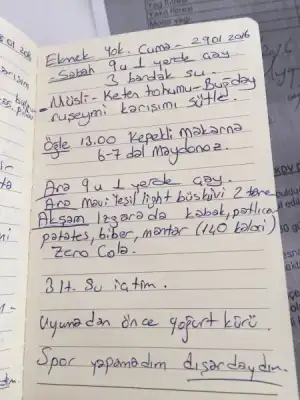 Ekmek Yok. Cuma - 29.01.2016
- Sabah 9u 1 yerde çay
3 bardak su.
- Müsli - Keten tohumu - Buğday
ruşeymi karışımı sütle.
Öğle 13.00 Kepekli Makarna
6-7 dal Maydonoz.
Ara 9u 1 yerde çay.
Ara Mavi Yeşil light büsküvi 2 tane
Akşam Izgarada kabak, patlıcan
patates, biber, mantar (140 kalori)
Zero Cola.
3 lt. Su içtim.
Uyumadan önce yoğurt kürü.
Spor yapamadım dışardaydım.